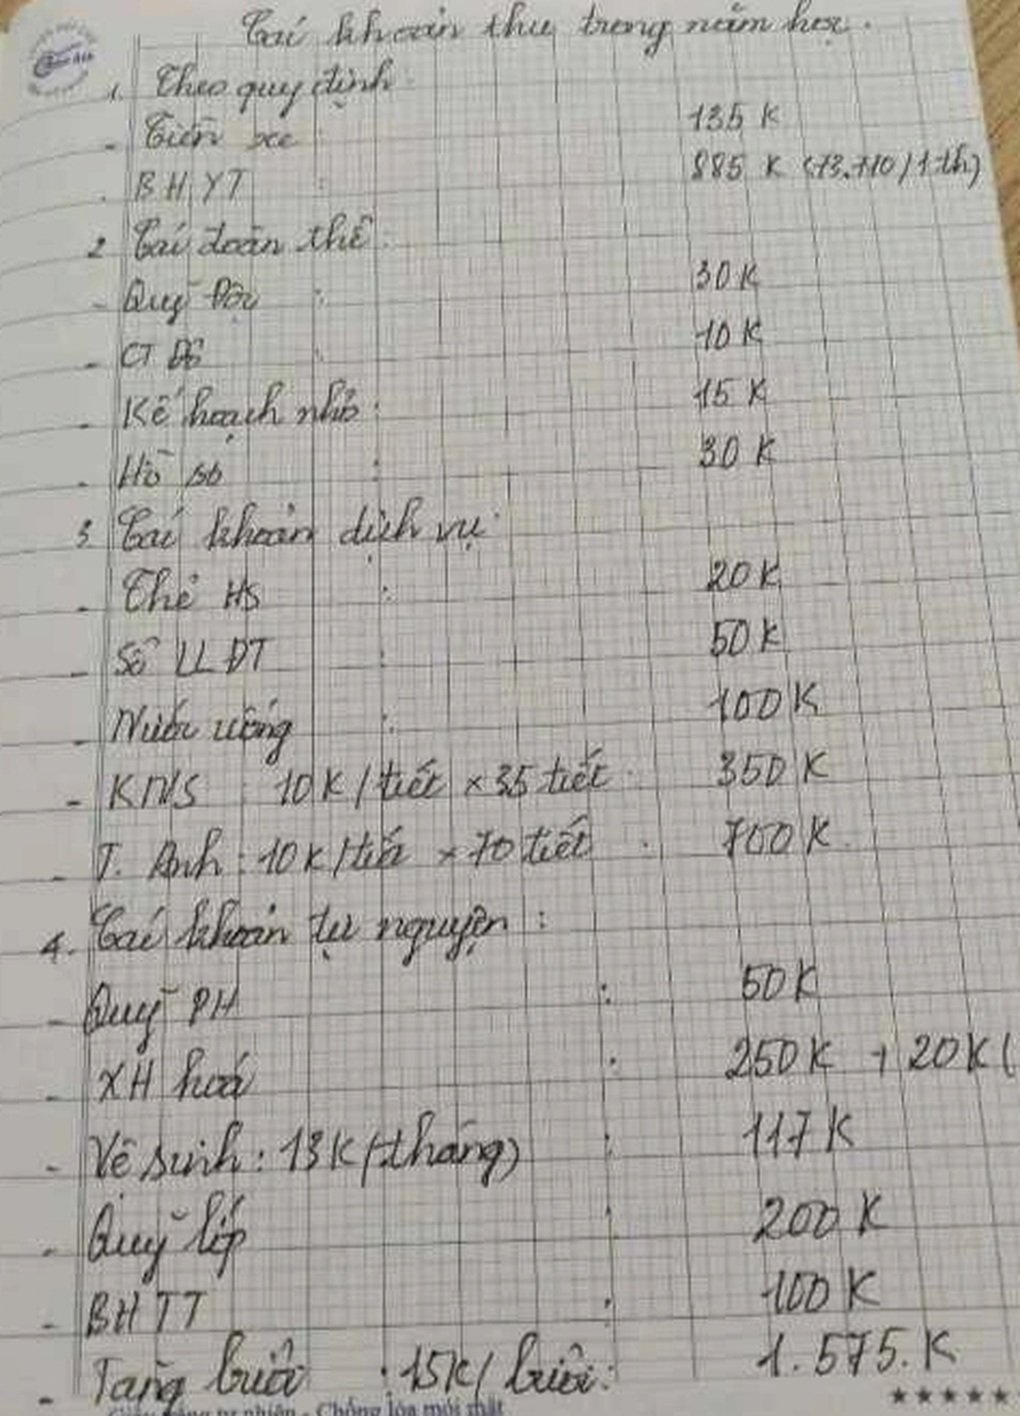 Các khoản thu trong năm học.
1. Theo quy định
- Tiền xe : 135 K
- BHYT : 885 K (73.710/1th)
2 Các đoàn thể
- Quỹ Đội : 30K
- CT Đỏ : 10 K
- Kế hoạch nhỏ : 15 K
- Hồ sơ : 30 K
3 Các khoản dịch vụ
- Thẻ HS : 20K
- Sổ LLĐT : 50K
- Nước uống : 100K
- KNS : 10K/tiết × 35 tiết 350K
- T. Anh : 10K/tiết × 70 tiết . 700K
4. Các khoản tự nguyện :
- Quỹ PH : 50K
- XH hoá : 250K + 20K (
- Vệ sinh : 13K/tháng) : 117K
- Quỹ lớp : 200 K
- BHTT : 100K
- Tăng buổi : 15K/buổi : 1.575.K
Chống lóa mỏi mắt